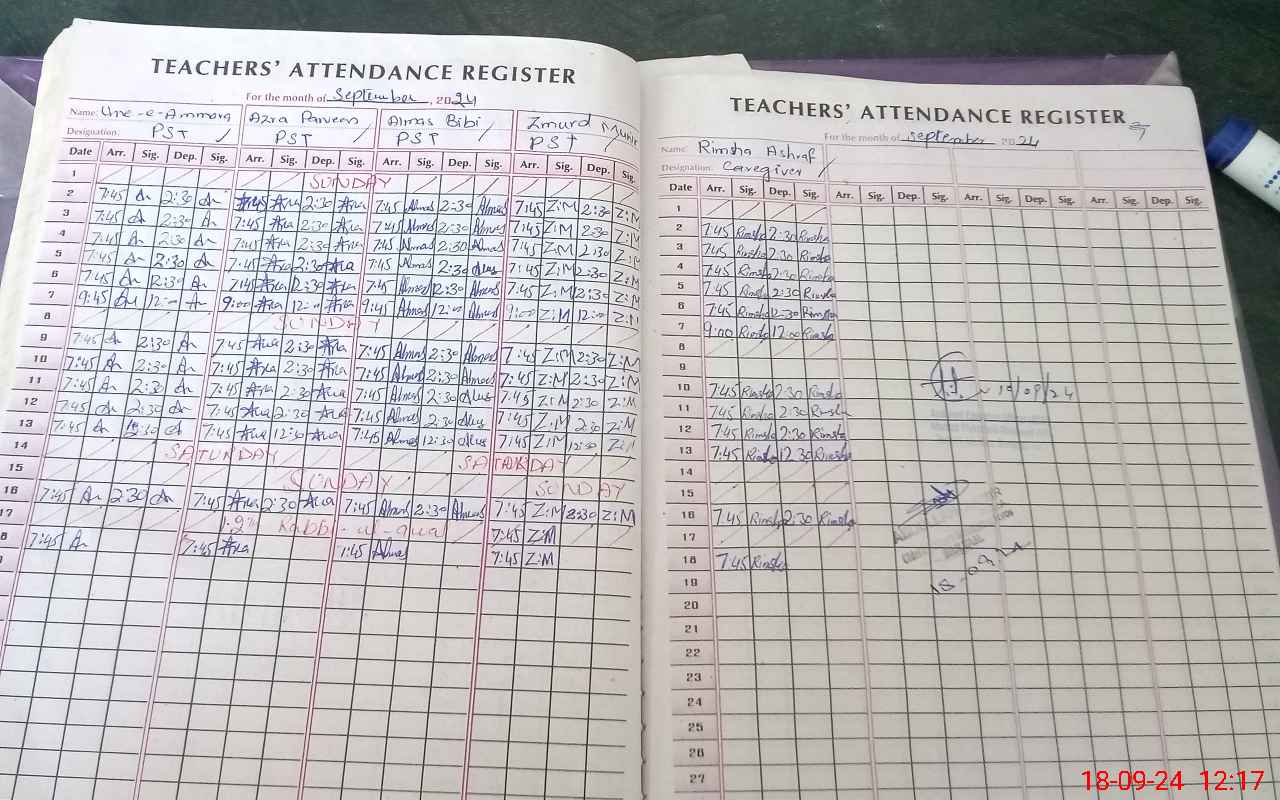 TEACHERS' ATTENDANCE REGISTER
For the month of September, 2024
Name: Ume-e-Ammara Azra Parveen Almas Bibi Zmurd Munir
Designation: PST PST PST PST
Date Arr. Sig. Dep. Sig. Arr. Sig. Dep. Sig. Arr. Sig. Dep. Sig. Arr. Sig. Dep. Sig.
1 SUNDAY
2 7:45 2:30 7:45 2:30 7:45 Almas 2:30 Almas 7:45 Z:M 2:30 Z:M
3 7:45 2:30 7:45 2:30 7:45 Almas 2:30 Almas 7:45 Z:M 2:30 Z:M
4 7:45 2:30 7:45 2:30 7:45 Almas 2:30 Almas 7:45 Z:M 2:30 Z:M
5 7:45 2:30 7:45 2:30 7:45 Almas 2:30 7:45 Z:M 2:30 Z:M
6 7:45 2:30 7:45 2:30 7:45 Almas 2:30 Almas 7:45 Z:M 2:30 Z:M
7 9:45 12:00 9:00 12:00 9:45 Almas 12:00 Almas 9:00 Z:M 12:00 Z:M
8 SUNDAY
9 7:45 2:30 7:45 2:30 7:45 Almas 2:30 Almas 7:45 Z:M 2:30 Z:M
10 7:45 2:30 7:45 2:30 7:45 Almas 2:30 Almas 7:45 Z:M 2:30 Z:M
11 7:45 2:30 7:45 2:30 7:45 Almas 2:30 7:45 Z:M 2:30 Z:M
12 7:45 2:30 7:45 2:30 7:45 Almas 2:30 7:45 Z:M 2:30 Z:M
13 7:45 12:30 7:45 12:30 7:45 Almas 12:30 7:45 Z:M 12:30 Z:M
14 SATUNDAY SATURDAY
15 SUNDAY SUNDAY
16 7:45 2:30 7:45 2:30 7:45 Almas 2:30 Almas 7:45 Z:M 2:30 Z:M
17 Rabbi-ul-awal 7:45 Z:M
8 7:45 7:45 7:45 Almas 7:45 Z:M
TEACHERS' ATTENDANCE REGISTER
For the month of September 2024
Name: Rimsha Ashraf
Designation: Caregiver
Date Arr. Sig. Dep. Sig. Arr. Sig. Dep. Sig. Arr. Sig. Dep. Sig. Arr. Sig. Dep. Sig.
1
2 7:45 Rimsha 2:30 Rimsha
3 7:45 Rimsha 2:30 Rimsha
4 7:45 Rimsha 2:30 Rimsha
5 7:45 Rimsha 2:30 Rimsha
6 7:45 Rimsha 12:30 Rimsha
7 9:00 Rimsha 12:00 Rimsha
8
9
10 7:45 Rimsha 2:30 Rimsha
11 7:45 Rimsha 2:30 Rimsha
12 7:45 Rimsha 2:30 Rimsha
13 7:45 Rimsha 12:30 Rimsha
14
15
16 7:45 Rimsha 2:30 Rimsha
17
18 7:45 Rimsha
18-09-24
19
20
21
22
23
24
25
26
27
18-09-24 12:17